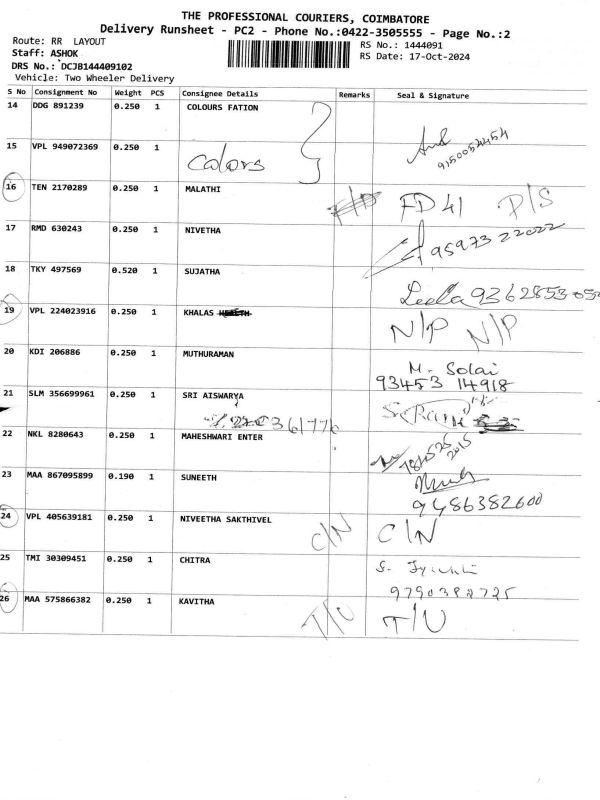 THE PROFESSIONAL COURIERS, COIMBATORE
Delivery Runsheet - PC2 - Phone No.:0422-3505555 - Page No.:2
Route: RR LAYOUT
RS No.: 1444091
Staff: ASHOK
RS Date: 17-Oct-2024
DRS No.: DCJB144409102
Vehicle: Two Wheeler Delivery
S No Consignment No Weight PCS Consignee Details Remarks Seal & Signature
14 DDG 891239 0.250 1 COLOURS FATION
15 VPL 949072369 0.250 1
Colors
16 TEN 2170289 0.250 1 MALATHI
FD 41 P/S
17 RMD 630243 0.250 1 NIVETHA
95973 22022
18 TKY 497569 0.520 1 SUJATHA
Leela
19 VPL 224023916 0.250 1 KHALAS HEALTH
N/P N/P
20 KDI 206886 0.250 1 MUTHURAMAN
M. Solai
93453 14918
21 SLM 356699961 0.250 1 SRI AISWARYA
S. Rani
22 NKL 8280643 0.250 1 MAHESHWARI ENTER
23 MAA 867095899 0.190 1 SUNEETH
9486382600
24 VPL 405639181 0.250 1 NIVEETHA SAKTHIVEL
C/N C/N
25 TMI 30309451 0.250 1 CHITRA
9790382725
26 MAA 575866382 0.250 1 KAVITHA
T/U T/U